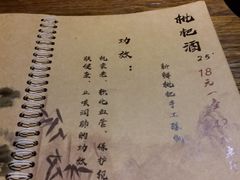 枇杷酒
25.
18元一
新鲜枇杷手工酿制
功效：
抗衰老、软化血管、保护视
肤健康、止咳润肺的功效